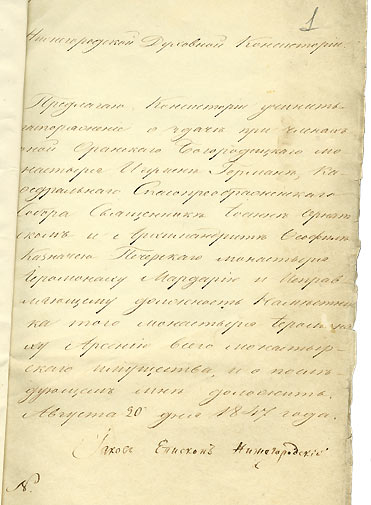 1
Нижегородской Духовной Консисторіи.
Предлагаю Консисторіи учинить
о сдачѣ при
Оранскаго Богородицкаго мо
настыря Игумена Германа, Ка
ѳедральнаго Спасопреображенскаго
Собора Священника Іоанна
и Архимандрита Ѳеофила
Казначею Печерскаго монастыря
Іеромонаху Мардарію и Исправ
ляющему должность Намѣстни
ка того монастыря Іеромона
ху Арсенію всего монастыр-
скаго имущества, и о послѣ
дующемъ мнѣ доложить.
Августа 20 дня 1847 года.
Іаковъ Епископъ Нижегородскій
№.